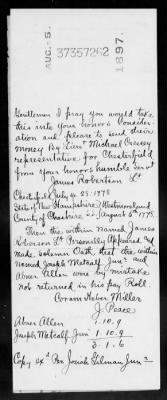 AUG. -5.
37357262
1897.
Gentlemen I pray you would take
this into your honors Consider
ation and please to send their
money By Lieut Michael Cressey
representative for Chesterfield
from your honors humble servt
James Robertson Lt
Chesterfield July ye 28: 1778
State of New Hampshire Westmoreland
County of Cheshire ss August 6th 1778
Then the within named James
Roberson Lt Personally Appeared and
made Solemn Oath, that the within
named Joseph Metcalf Junr and
Abner Allen was by mistake
not returned in his pay Roll.
Coram Heber Miller
J. Peace
Abner Allen 1.10.9
Joseph Metcalf Junr 1.10.9
3.1.6
Copy exd Per Josiah Gilman Junr